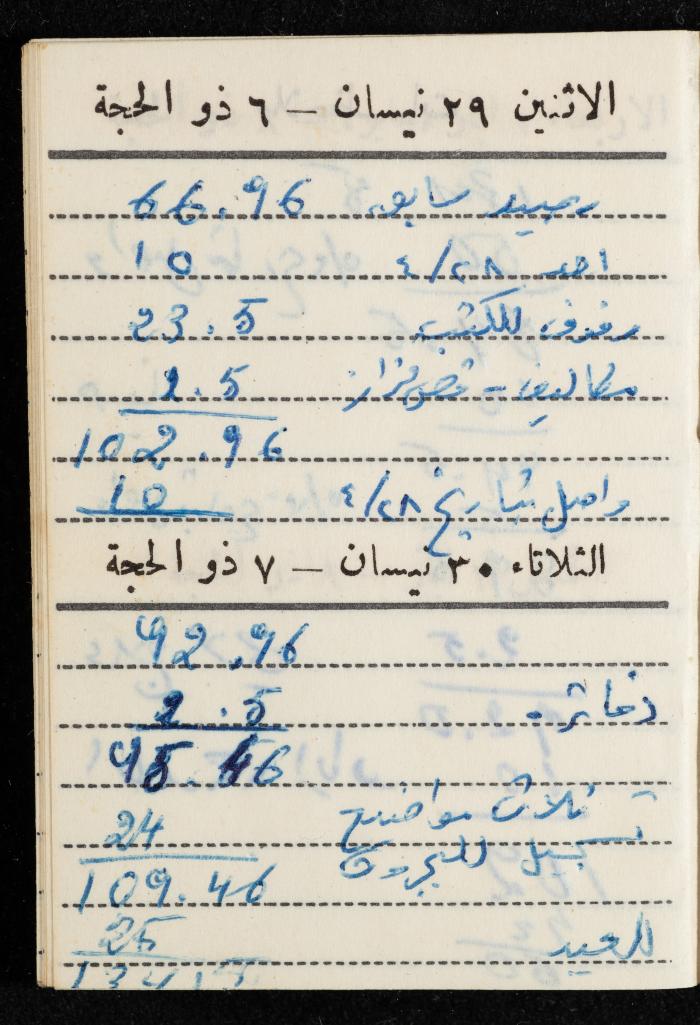 الاثنين ٢٩ نيسان – ٦ ذو الحجة
رصيد سابق 66.96
احد ٤/٢٨ 10
رفوف للكتب 23.5
2.5
102.96
واصل بتاريخ ٤/٢٨ 10
الثلاثاء ٣٠ نيسان – ٧ ذو الحجة
92.96
دفاتر 2.5
95.46
ثلاث مواضيع
تسجيل 24
109.46
للعيد 25